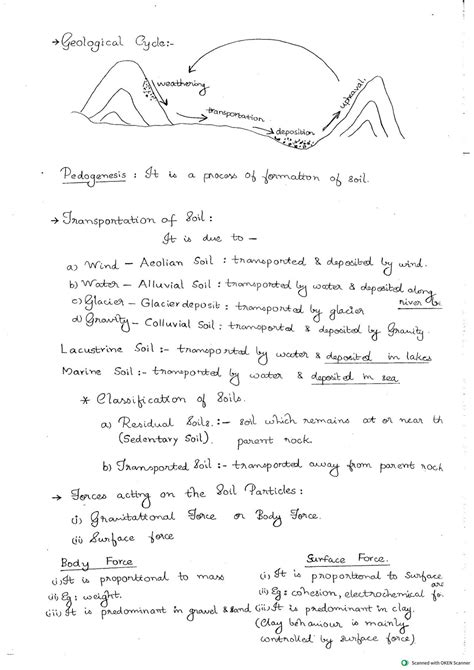 → Geological Cycle:-
weathering
transportation
deposition
upheaval
Pedogenesis : It is a process of formation of soil.
→ Transportation of Soil :
It is due to -
a) Wind - Aeolian Soil : transported & deposited by wind.
b) Water - Alluvial Soil : transported by water & deposited along
river
c) Glacier - Glacier deposit : transported by glacier
d) Gravity - Colluvial Soil : transported & deposited by Gravity
Lacustrine Soil :- transported by water & deposited in lakes
Marine Soil :- transported by water & deposited in sea
* Classification of Soils.
a) Residual Soils. :- soil which remains at or near th
(Sedentary Soil). parent rock.
b) Transported Soil :- transported away from parent rock
→ Forces acting on the Soil Particles :
(i) Gravitational Force or Body Force.
(ii) Surface force
Body Force
(i) It is proportional to mass
(ii) Eg : weight.
(iii) It is predominant in gravel & sand
Surface Force.
(i) It is proportional to Surface
(ii) Eg : cohesion, electrochemical fo.
(iii) It is predominant in clay.
(Clay behaviour is mainly
controlled by surface force)
Scanned with OKEN Scanner